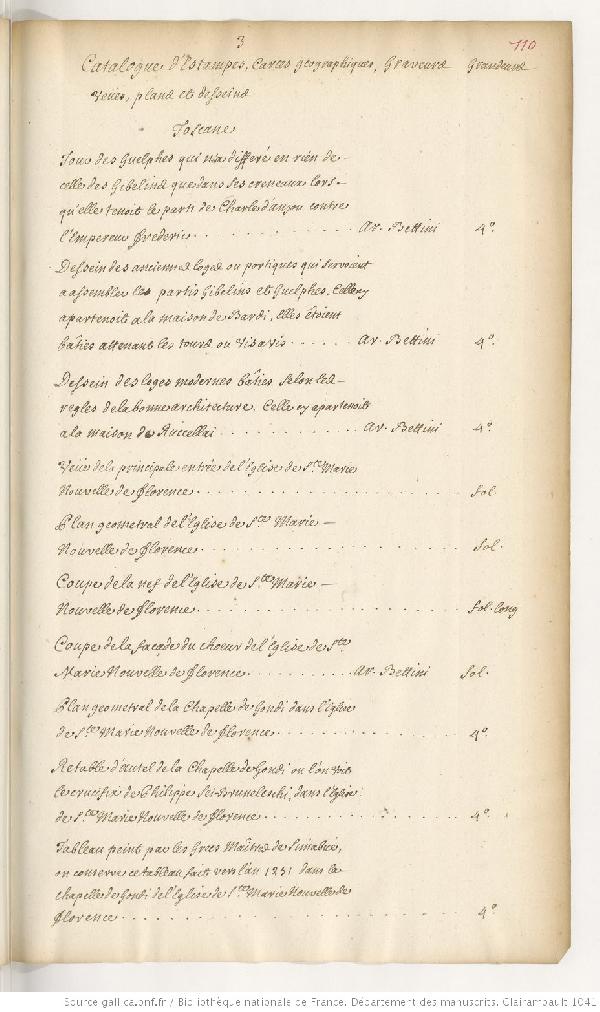 3
110
Catalogue d'Estampes, Cartes geographiques, Graveurs Grandeurs
Veües, plans et desseins
Toscane
Tour des Guelphes qui n'a differé en rien de
celle des Gibelins que dans ses creneaux lors-
qu'elle tenoit le parti de Charles d'anjou contre
l'Empereur Frederic . . . . . . . . . . . . Av. Bettini 4°.
Dessein des anciennes loges ou portiques qui servoient
a assembler les partis Gibelins et Guelphes. Celle cy
apartenoit a la maison de Bardi, Elles étoient
bâties attenant les tours ou Visavis . . . . . . Av. Bettini 4°.
Dessein des loges modernes bâties selon les
regles de la bonne architecture. Celle cy apartenoit
a la maison de Ruccellai . . . . . . . . . . . Av. Bettini 4°.
Veüe de la principale entrée de l'Eglise de Ste. Marie
Nouvelle de Florence . . . . . . . . . . . . . . . . . . fol.
Plan geometral de l'Eglise de Ste Marie
Nouvelle de Florence . . . . . . . . . . . . . . . . . . fol.
Coupe de la nef de l'Eglise de Ste Marie
Nouvelle de Florence . . . . . . . . . . . . . . . . . . fol. long
Coupe de la façade du choeur de l'Eglise de Ste.
Marie Nouvelle de Florence . . . . . . . . . Av. Bettini fol.
Plan geometral de la Chapelle de Gondi dans l'église
de Ste Marie Nouvelle de Florence . . . . . . . . . . . . 4°.
Retable d'autel de la Chapelle de Gondi ou l'on voit
le crucifix de Philippe Sei-Bruneleschi, dans l'Eglise
de Ste Marie Nouvelle de Florence . . . . . . . . . . . . 4°.
Tableau peint par les Grecs Maîtres de Simabué,
on conserve ce tableau fait vers l'an 1251 dans la
chapelle de Gondi de l'Eglise de Ste Marie Nouvelle de
Florence . . . . . . . . . . . . . . . . . . . . . . . . 4°.
Source gallica.bnf.fr / Bibliothèque nationale de France. Département des manuscrits. Clairambault 1041